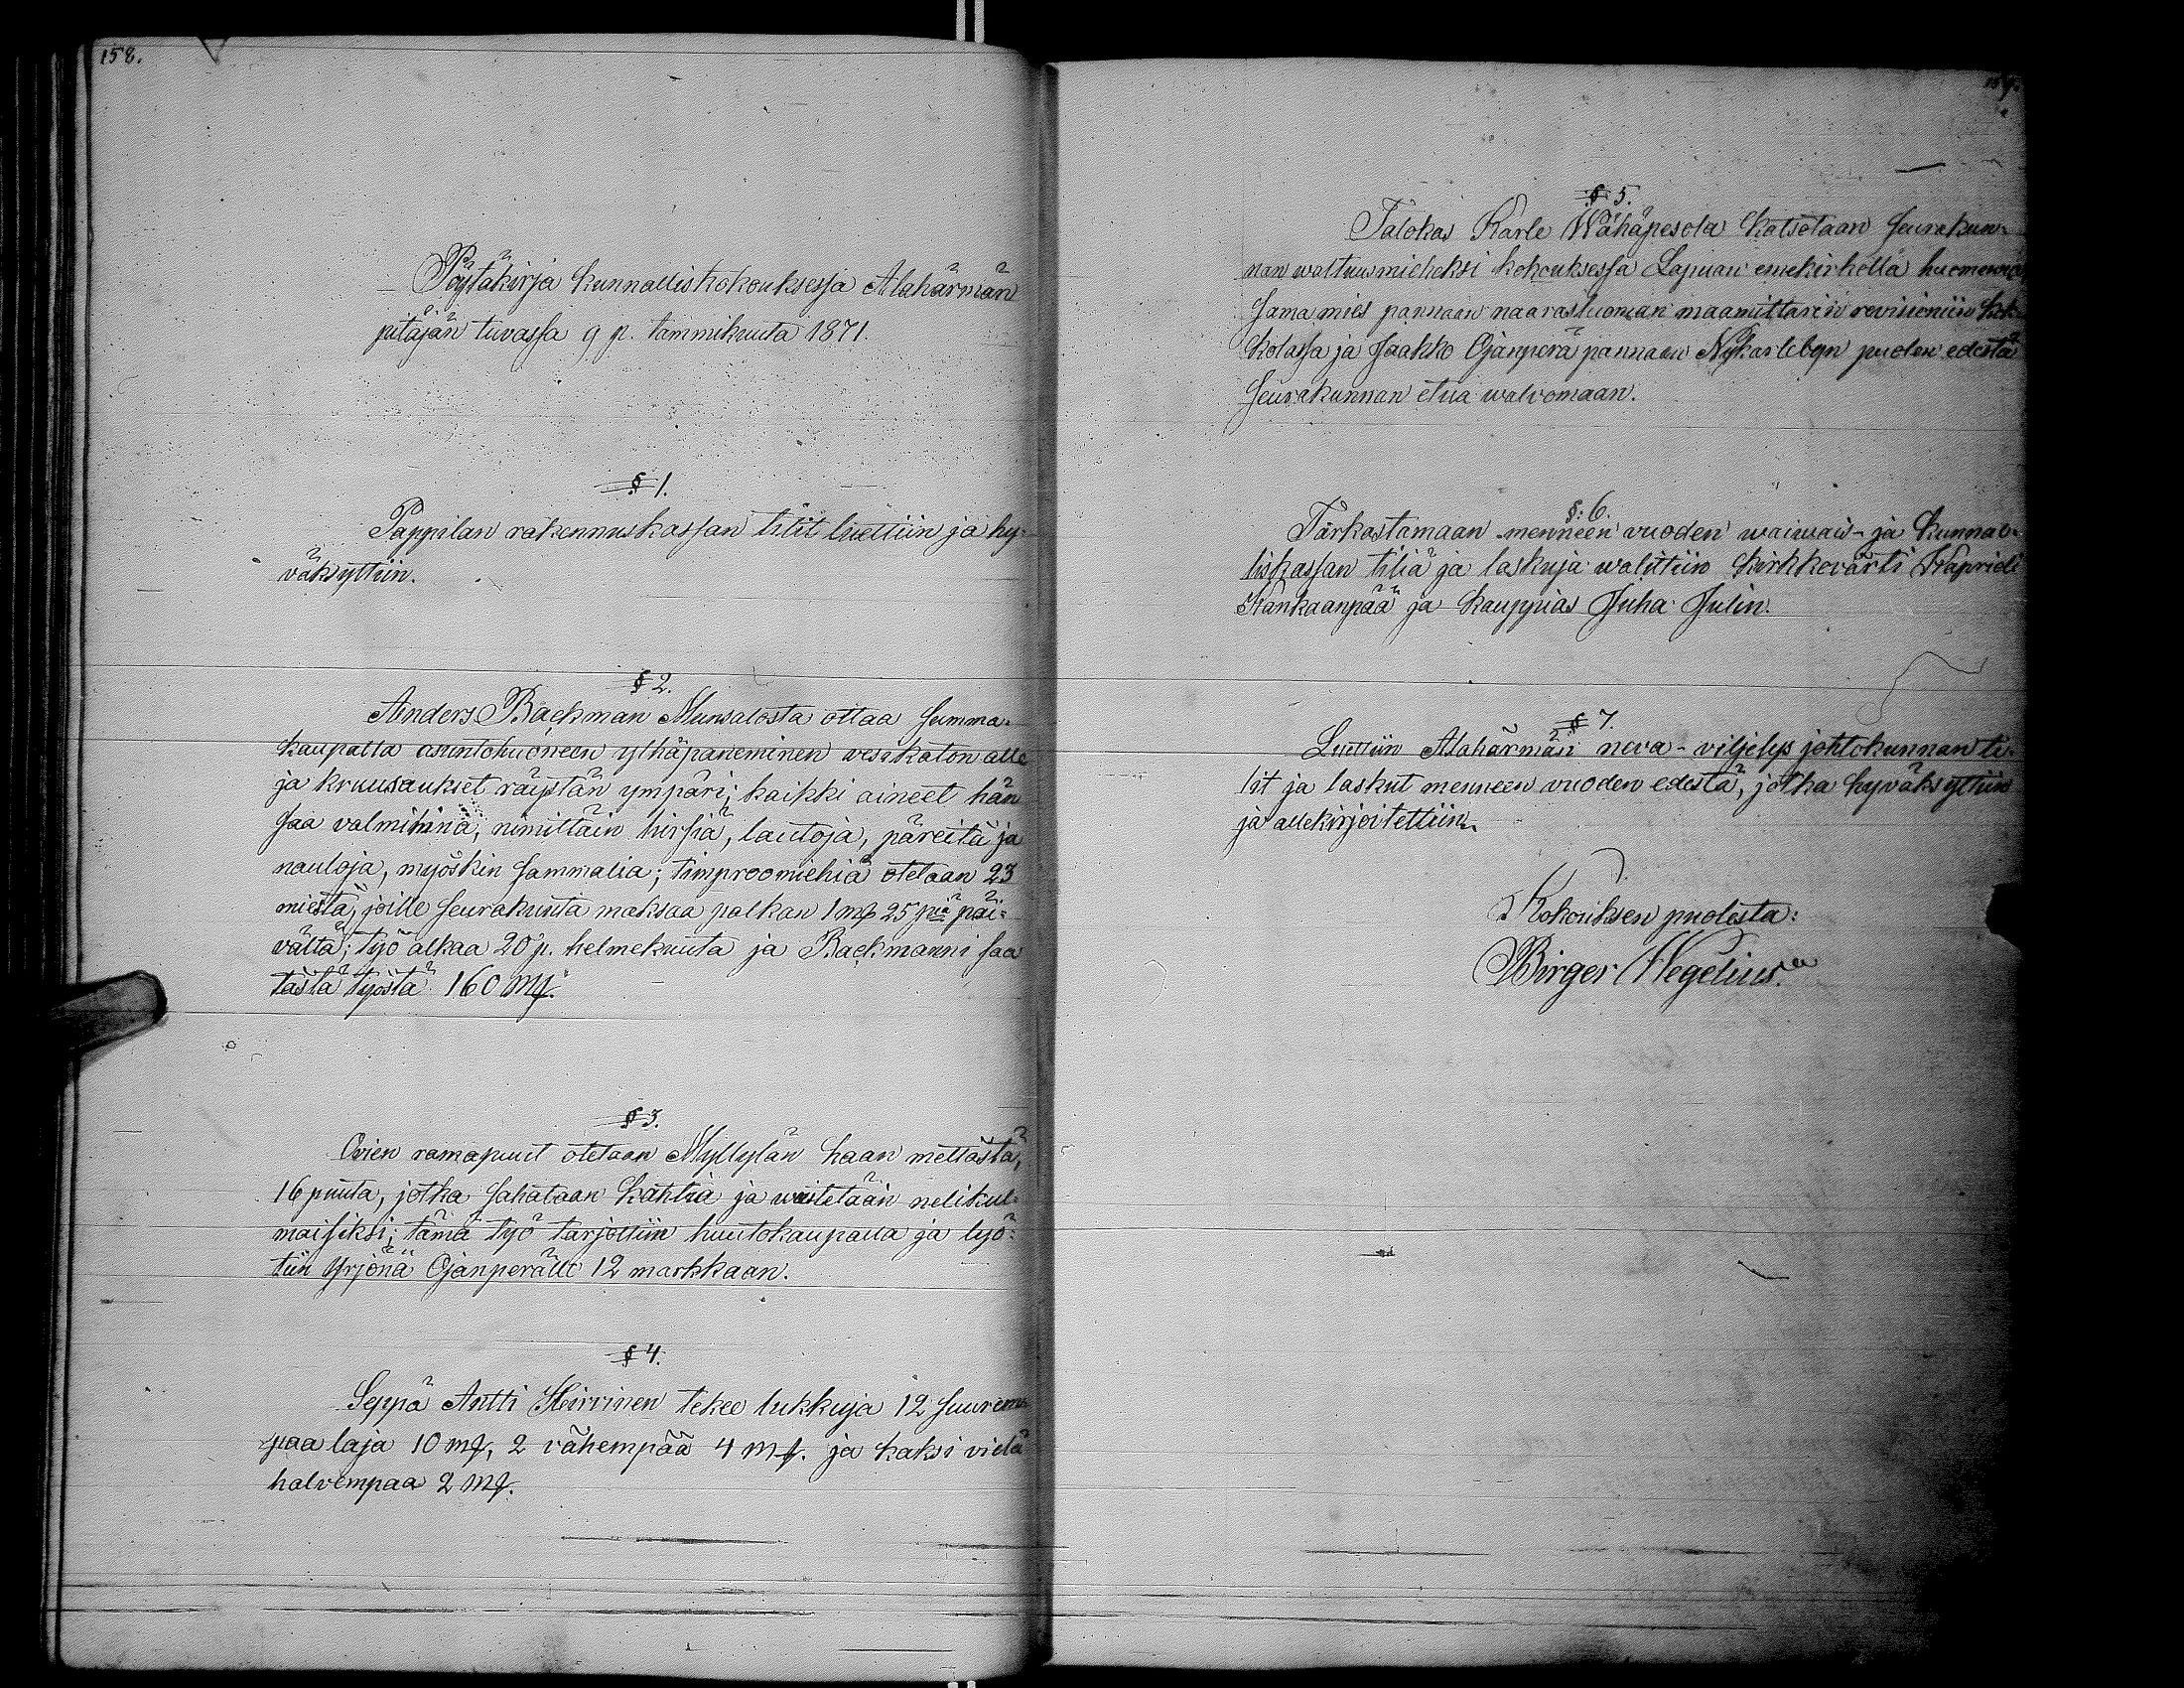 158.
Pöytäkirja kunnalliskokouksessa Alahärmän
pitäjän tuvassa 9 p. tammikuuta 1871.
§ 1.
Pappilan rakennuskassan tilit luettiin ja hy-
väksyttiin.
§ 2.
Anders Backman Munsalosta ottaa summa-
kaupalla asuntohuoneen ylhäpaneminen vesikaton alle
ja kruusaukset räystän ympäri; kaikki aineet hän
saa valmihinä, nimittäin hirsiä, lautoja, päreitä ja
nauloja, myöskin sammalia; timproomiehiä otetaan 23
miestä, joille seurakunta maksaa palkan 1 mk 25 piä päi-
vältä; työ alkaa 20 p. helmekuuta ja Backmanni saa
tästä työstä 160 mk.
§ 3.
Ovien ramapuut otetaan Myllylän haan mettästä,
16 puuta, jotka sahataan kahtia ja veitetään nelikul-
maisiksi; tämä työ tarjottiin huutokaupalla ja lyö-
tiin Yrjönä Ojanperälle 12 markkaan.
§ 4.
Seppä Antti Hirvinen tekee lukkuja 12 suurem-
paa laja 10 mk, 2 vähempää 4 mk. ja kaksi vielä
halvempaa 2 mk.
159.
§ 5.
Talokas Karle Wähäpesola katsotaan seurakun-
nan waltuusmieheksi kokouksessa Lapuan emekirkollä huomenna
sama mies pannaan naarasluoman maamittariin revisioniin
kolassa ja Jaakko Ojanperä pannaan Nykarlebyn puolen edestä
seurakunnan etua walvomaan.
§ 6.
Tarkastamaan menneen vuoden waiwais- ja kunnal-
liskassan tiliä ja laskuja walittiin kirkkevärti Kaprieli
Kankaanpää ja kauppias Juha Julin.
§ 7.
Luettiin Alahärmän neva-viljelys johtokunnan ti-
lit ja laskut menneen vuoden edestä, jotka hyväksyttiin
ja allekirjoitettiin.
Kokouksen puolesta:
Birger Hegelius.